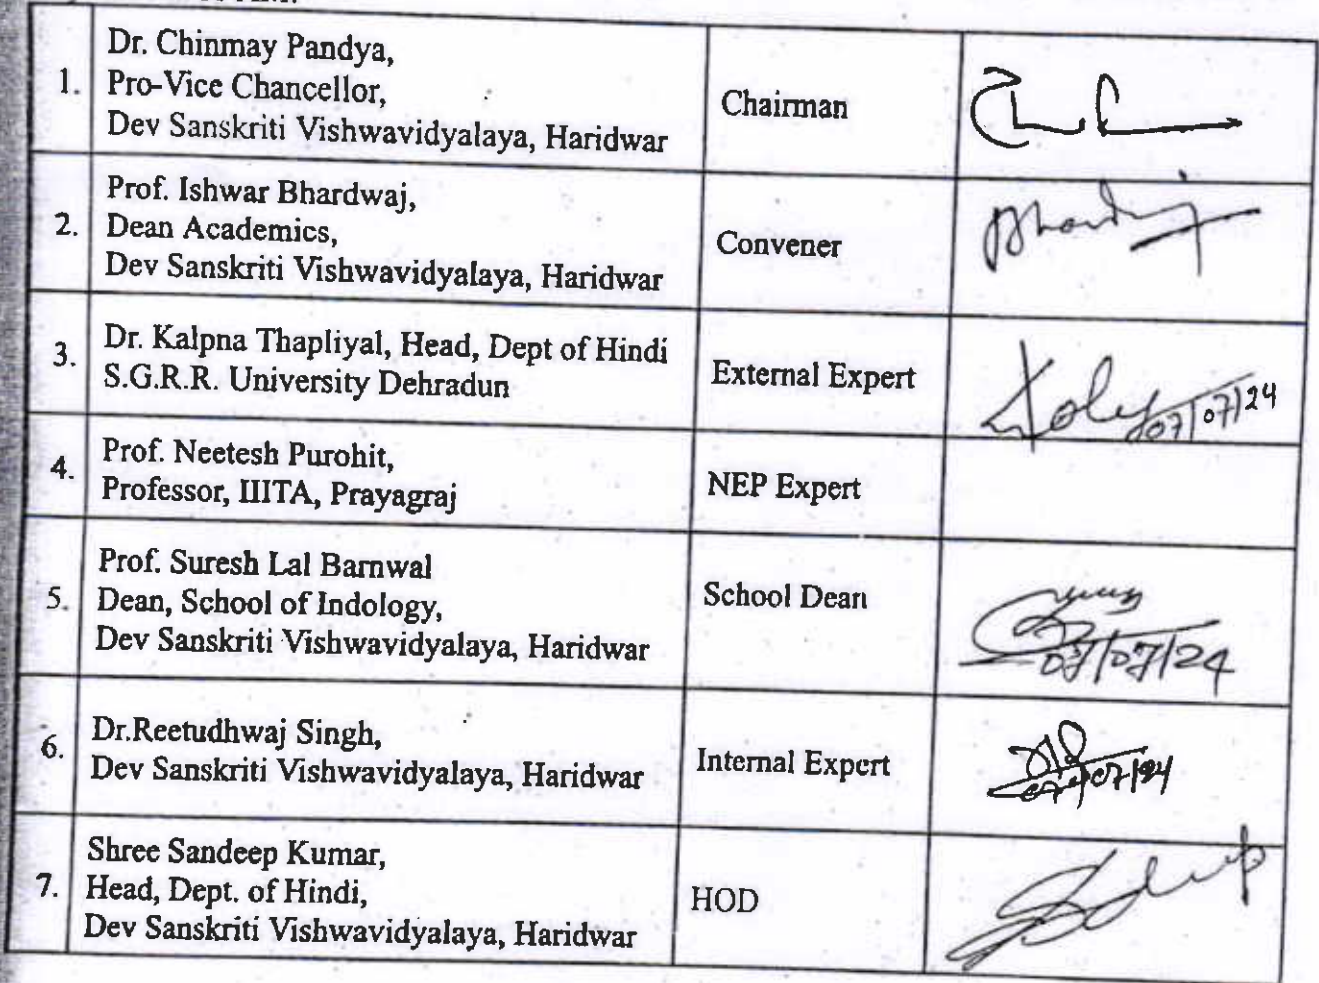 1. Dr. Chinmay Pandya,
Pro-Vice Chancellor,
Dev Sanskriti Vishwavidyalaya, Haridwar
Chairman
2. Prof. Ishwar Bhardwaj,
Dean Academics,
Dev Sanskriti Vishwavidyalaya, Haridwar
Convener
3. Dr. Kalpna Thapliyal, Head, Dept of Hindi
S.G.R.R. University Dehradun
External Expert
07/07/24
4. Prof. Neetesh Purohit,
Professor, IIITA, Prayagraj
NEP Expert
5. Prof. Suresh Lal Barnwal
Dean, School of Indology,
Dev Sanskriti Vishwavidyalaya, Haridwar
School Dean
07/07/24
6. Dr.Reetudhwaj Singh,
Dev Sanskriti Vishwavidyalaya, Haridwar
Internal Expert
07/07/24
7. Shree Sandeep Kumar,
Head, Dept. of Hindi,
Dev Sanskriti Vishwavidyalaya, Haridwar
HOD